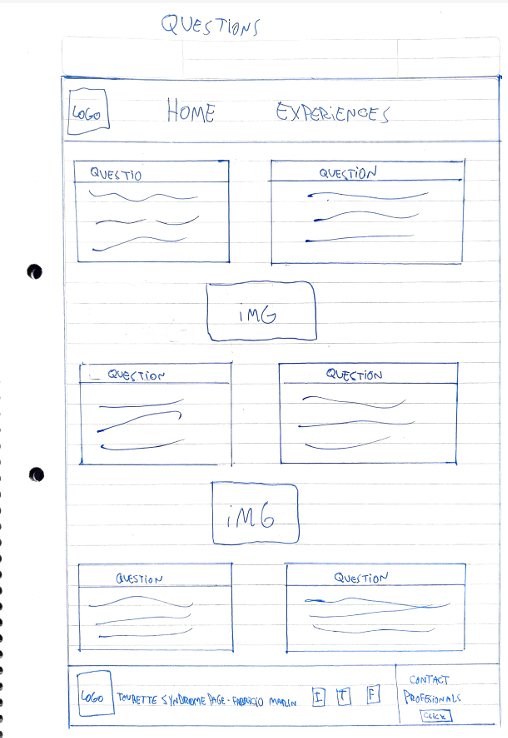 QUESTIONS
LOGO HOME EXPERIENCES
QUESTIO QUESTION
iMG
QUESTION QUESTION
iMG
QUESTION QUESTION
LOGO TOURETTE SYNDROME PAGE - FABRICIO MARLIN I T F
CONTACT
PROFESIONALS
CLICK